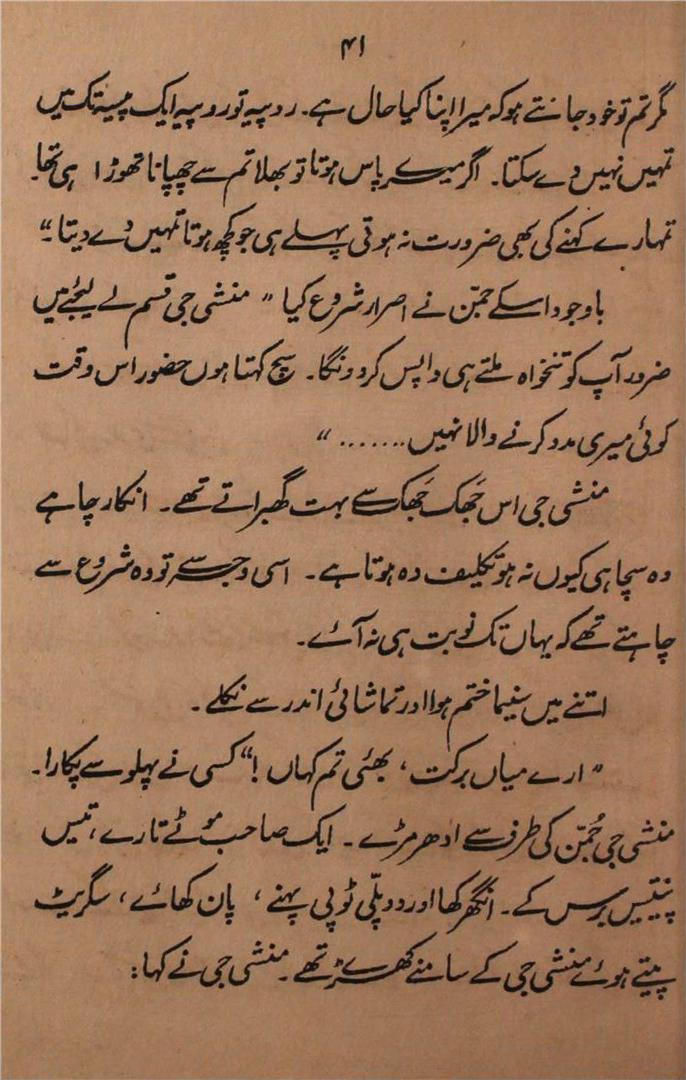 ۴۱
مگر تم تو خود جانتے ہو کہ میرا اپنا کیا حال ہے۔ روپیہ تو روپیہ ایک پیسہ تک میں
تمہیں نہیں دے سکتا۔ اگر میرے پاس ہوتا تو بھلا تم سے چھپانا تھوڑا ہی تھا۔
تمہارے کہنے کی بھی ضرورت نہ ہوتی پہلے ہی جو کچھ ہوتا تمہیں دے دیتا۔“
باوجود اسکے جمّن نے اصرار شروع کیا ”منشی جی قسم لے لیجئے میں
ضرور آپ کو تنخواہ ملتے ہی واپس کر دونگا۔ سچ کہتا ہوں حضور اس وقت
کوئی میری مدد کرنے والا نہیں.......“
منشی جی اس جَھک جَھک سے بہت گھبراتے تھے۔ انکار چاہے
وہ سچا ہی کیوں نہ ہو تکلیف دہ ہوتا ہے۔ اسی وجہ سے تو وہ شروع سے
چاہتے تھے کہ یہاں تک نوبت ہی نہ آئے۔
اتنے میں سنیما ختم ہوا اور تماشائی اندر سے نکلے۔
”ارے میاں برکت، بھئی تم کہاں!“ کسی نے پہلو سے پکارا۔
منشی جی جُمّن کی طرف سے ادھر مڑے۔ ایک صاحب موٹے تازے، تیس
پنتیس برس کے۔ انگھرکھا اور دوپلّی ٹوپی پہنے، پان کھائے، سگریٹ
پیتے ہوئے منشی جی کے سامنے کھڑے تھے۔ منشی جی نے کہا: